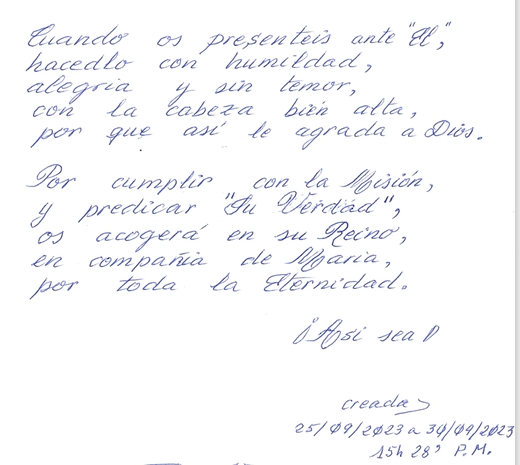 Cuando os presenteis ante "El",
hacedlo con humildad,
alegria y sin temor,
con la cabeza bién alta,
por que así le agrada a Dios.
Por cumplir con la Misión,
y predicar "Su Verdad",
os acogerá en su Reino,
en compañia de Maria,
por toda la Eternidad.
¡Asi sea!
creada
25/09/2023 a 30/09/2023
15h 28' P.M.